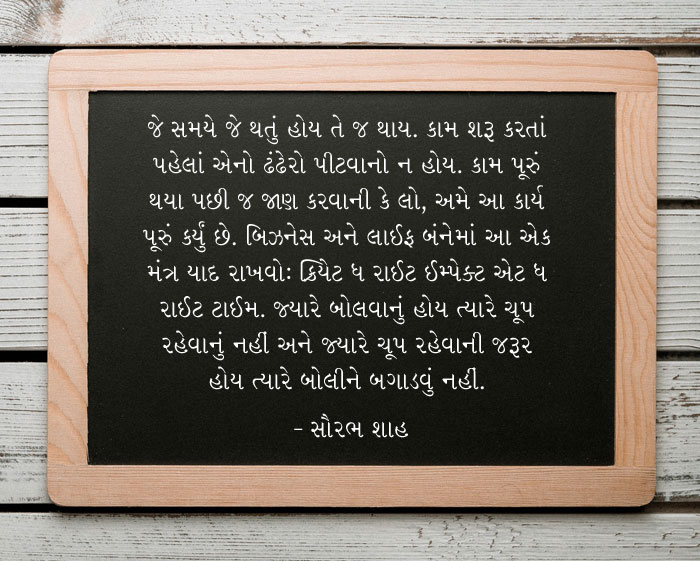 જે સમયે જે થતું હોય તે જ થાય. કામ શરૂ કરતાં
પહેલાં એનો ઢંઢેરો પીટવાનો ન હોય. કામ પૂરું
થયા પછી જ જાણ કરવાની કે લો, અમે આ કાર્ય
પૂરું કર્યું છે. બિઝનેસ અને લાઈફ બંનેમાં આ એક
મંત્ર યાદ રાખવોઃ ક્રિયેટ ધ રાઈટ ઈમ્પેક્ટ એટ ધ
રાઈટ ટાઈમ. જ્યારે બોલવાનું હોય ત્યારે ચૂપ
રહેવાનું નહીં અને જ્યારે ચૂપ રહેવાની જરૂર
હોય ત્યારે બોલીને બગાડવું નહીં.
- સૌરભ શાહ